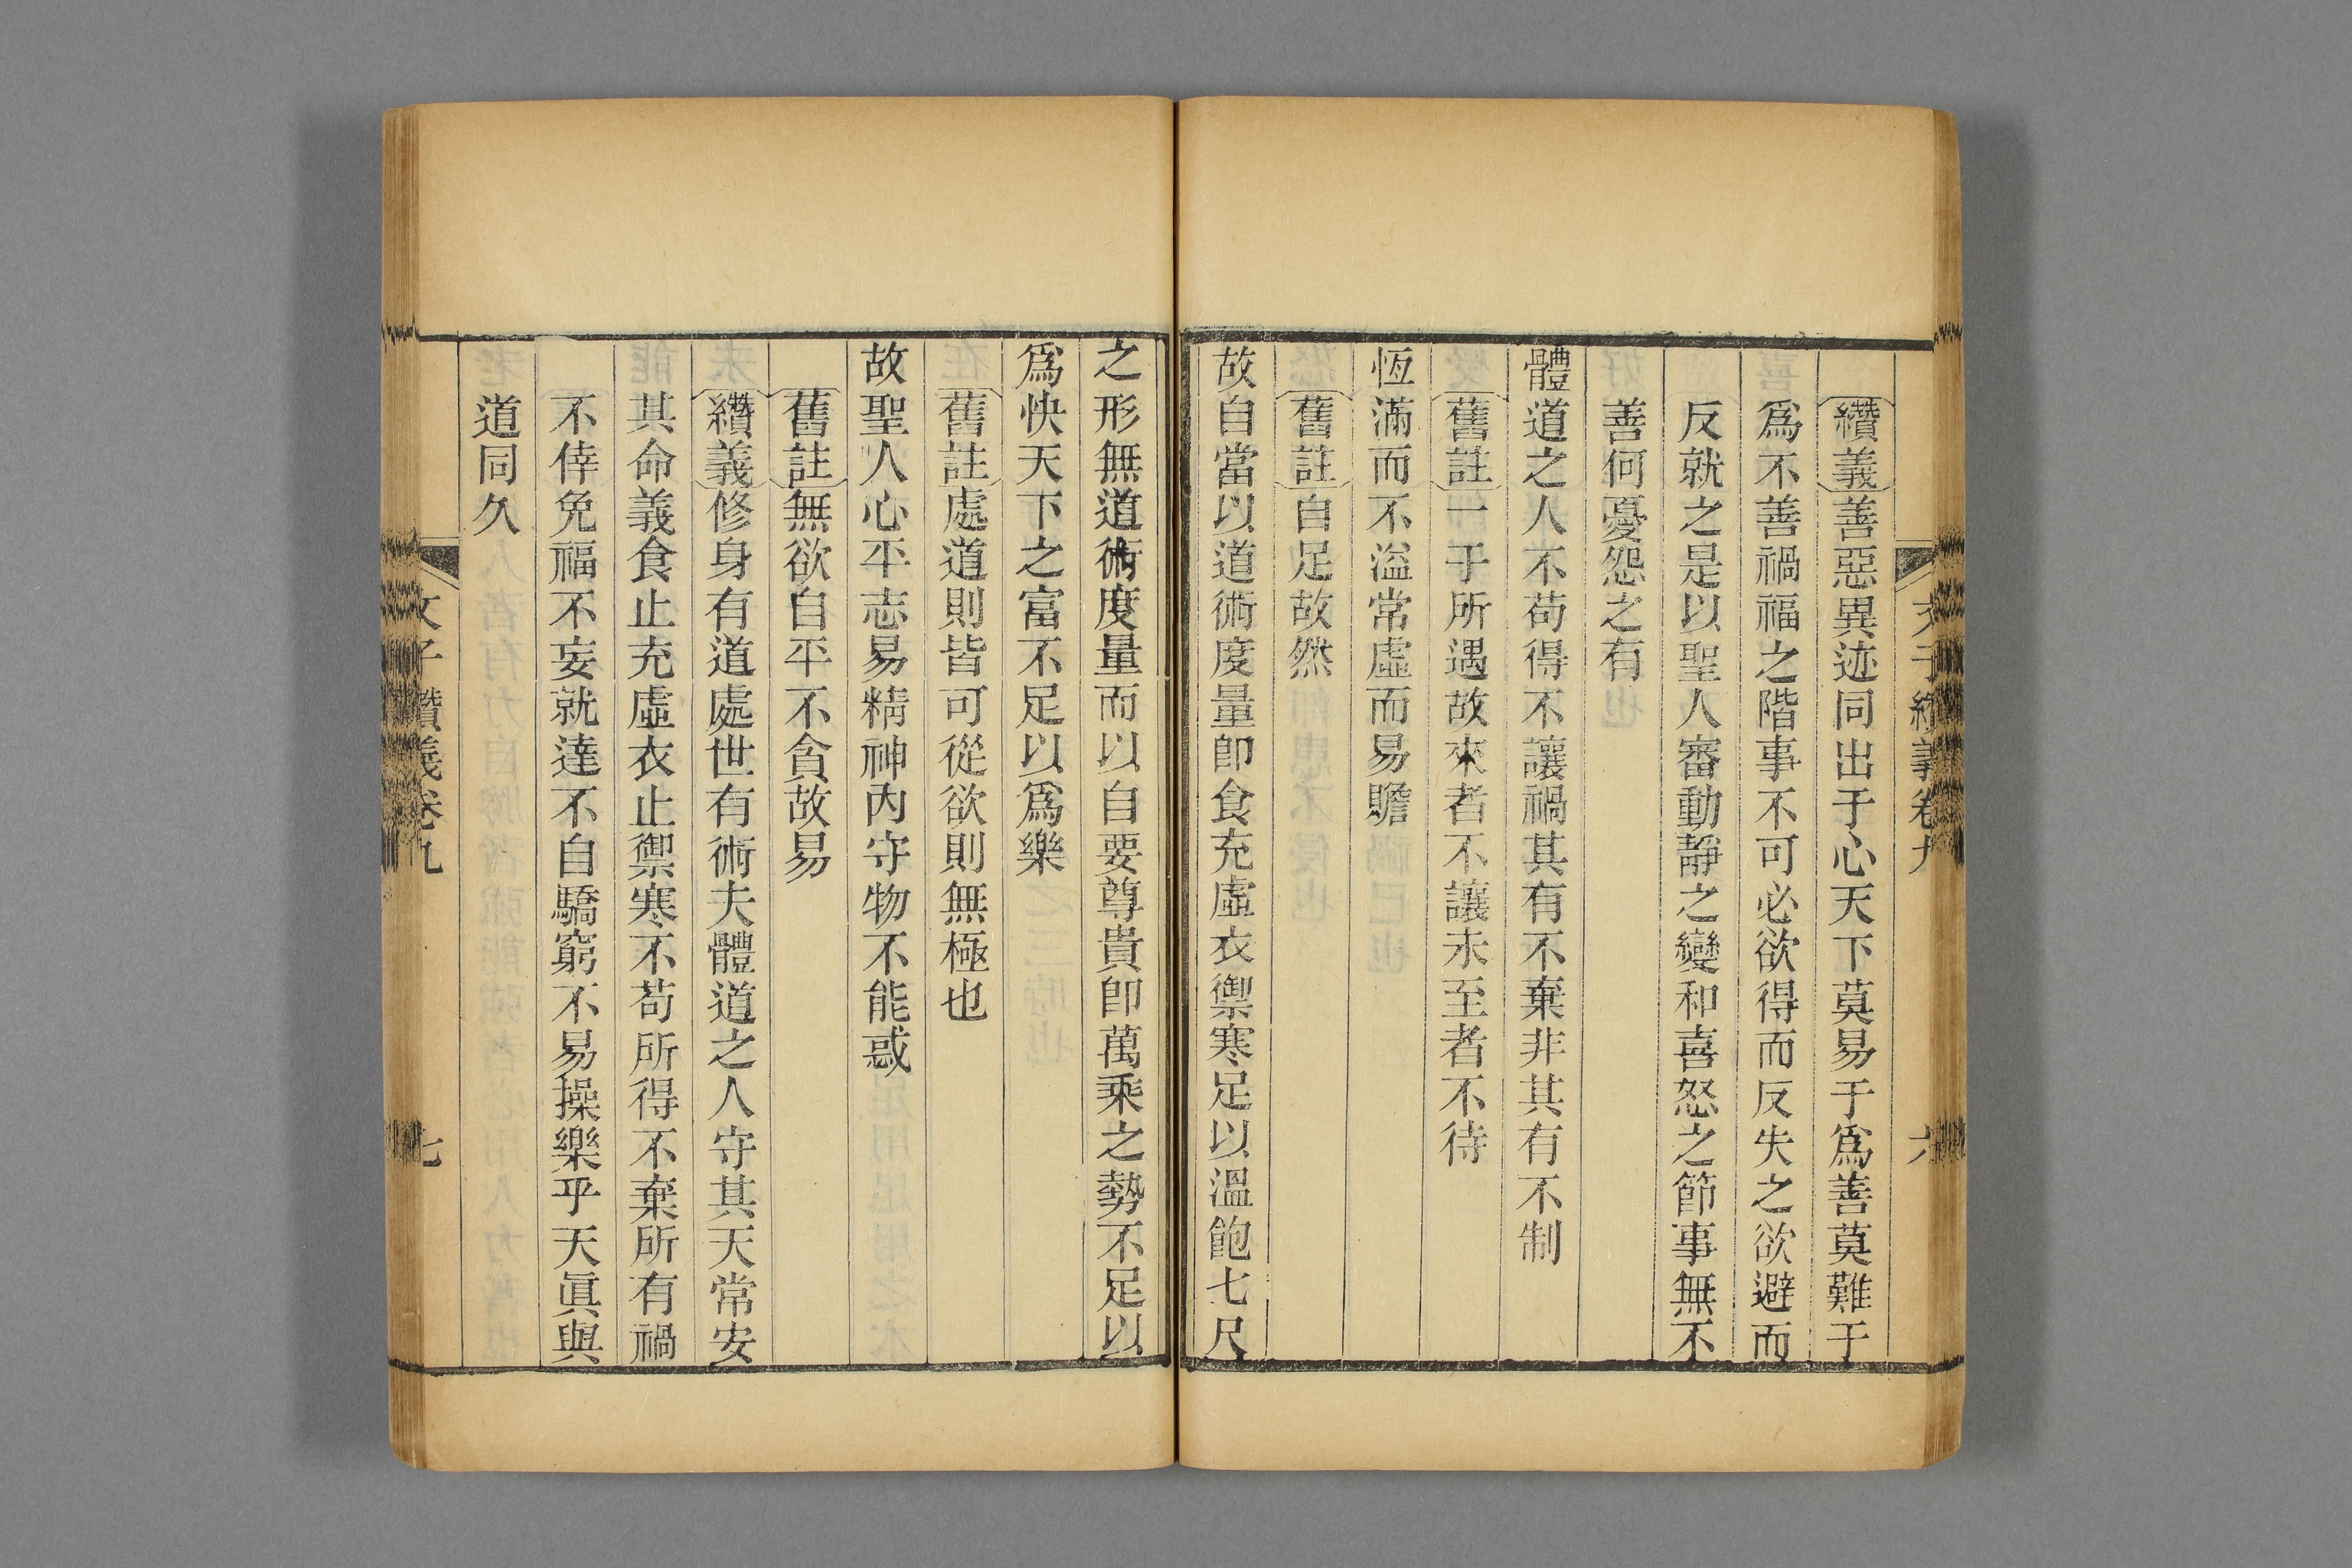 文子纘義卷九 六
纘義善惡異迹同出于心天下莫易于爲善莫難于
爲不善禍福之階事不可必欲得而反失之欲避而
反就之是以聖人審動靜之變和喜怒之節事無不
善何憂怨之有
體道之人不苟得不讓禍其有不棄非其有不制
舊註一于所遇故來者不讓未至者不待
恆滿而不溢常虛而易贍
舊註自足故然
故自當以道術度量卽食充虛衣禦寒足以溫飽七尺
之形無道術度量而以自要尊貴卽萬乘之勢不足以
爲快天下之富不足以爲樂
舊註處道則皆可從欲則無極也
故聖人心平志易精神內守物不能惑
舊註無欲自平不貪故易
纘義修身有道處世有術夫體道之人守其天常安
其命義食止充虛衣止禦寒不苟所得不棄所有禍
不倖免福不妄就達不自驕窮不易操樂乎天眞與
道同久
文子纘義卷九 七